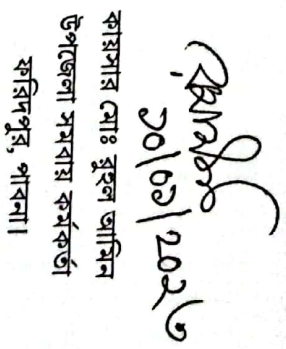 ১০/০১/২০২৩
কায়সার মোঃ রুহুল আমিন
উপজেলা সমবায় কর্মকর্তা
ফরিদপুর, পাবনা।